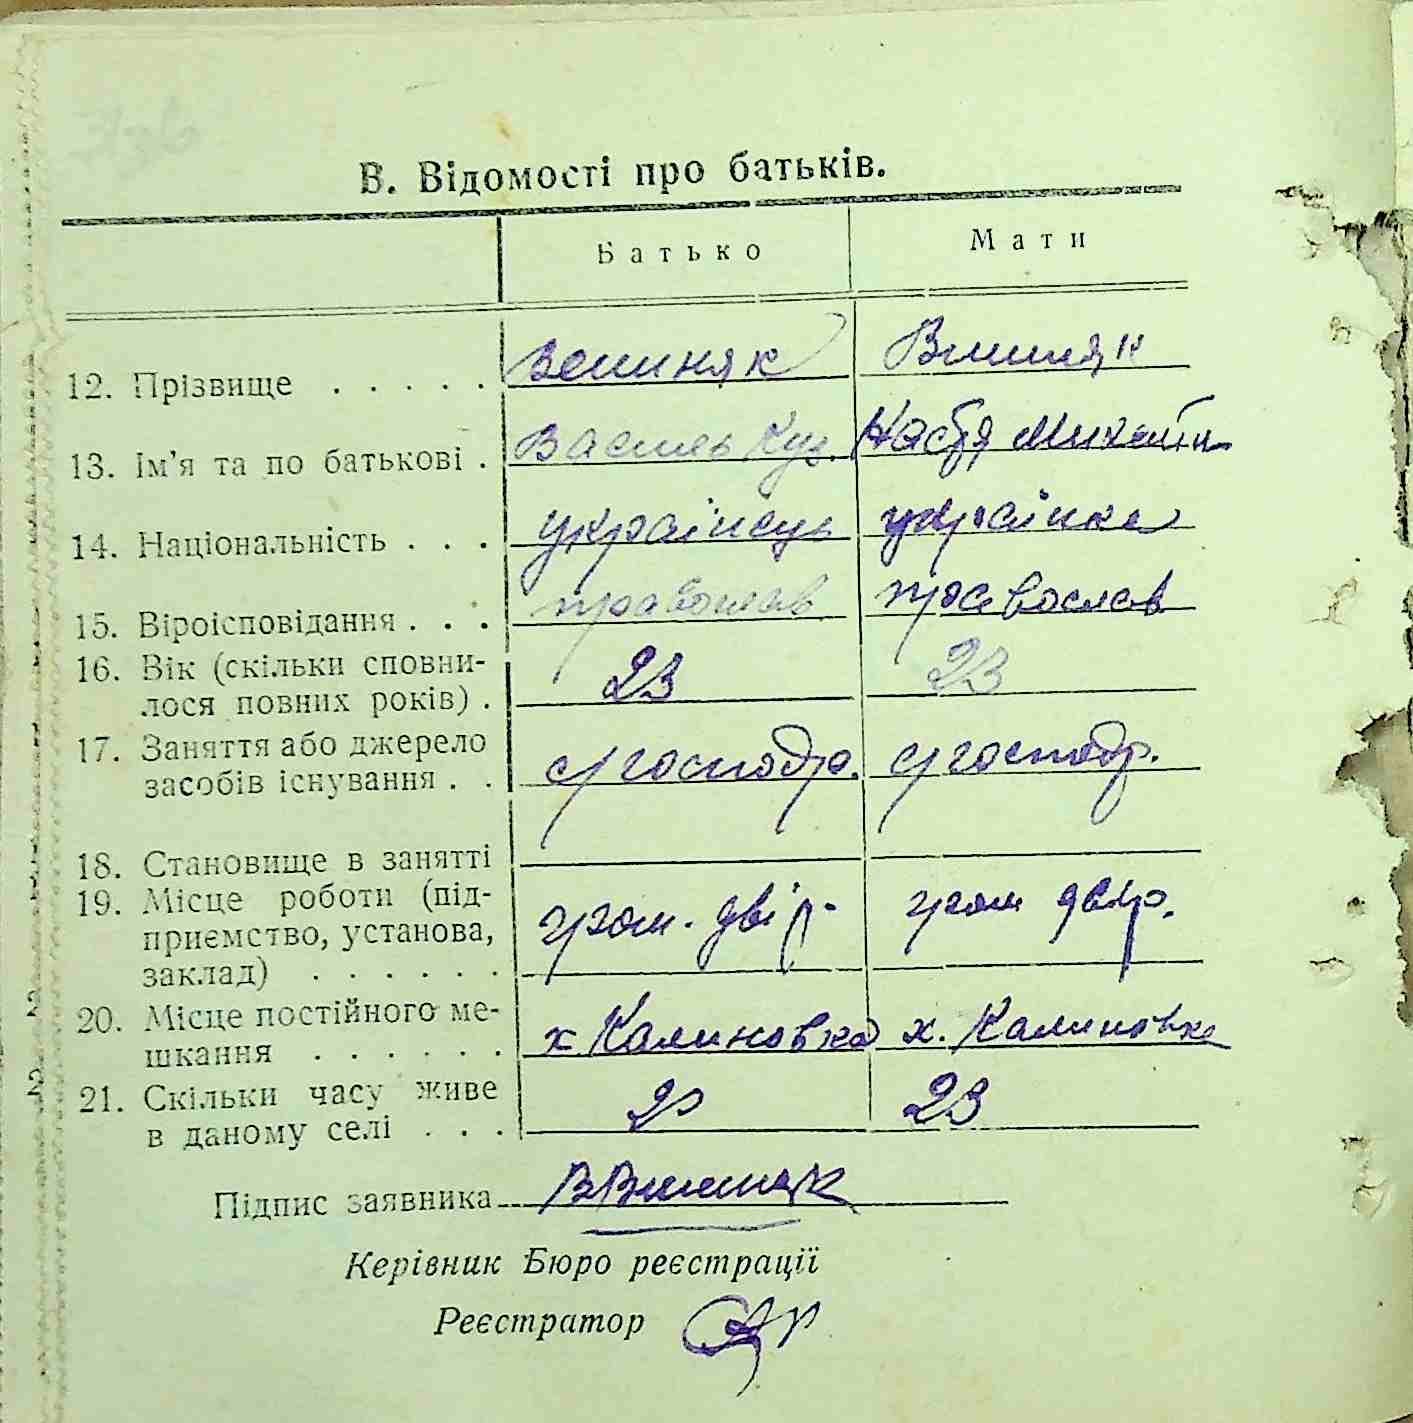 В. Відомості про батьків.
Батько Мати
12. Прізвище . . . . . Вишняк Вишняк
13. Ім'я та по батькові . Василь Куз. Настя
14. Національність . . . українець українка
15. Віроісповідання . . . православ православ
16. Вік (скільки сповни-
лося повних років) . 23 23
17. Заняття або джерело
засобів існування . . с/господр. с/господр.
18. Становище в занятті
19. Місце роботи (під-
приємство, установа, гром. двір. гром двір.
заклад) . . . . . .
20. Місце постійного ме-
шкання . . . . . . х Калиновка х. Калиновка
21. Скільки часу живе
в даному селі . . . 23
Підпис заявника ВВишняк
Керівник Бюро реєстрації
Реєстратор